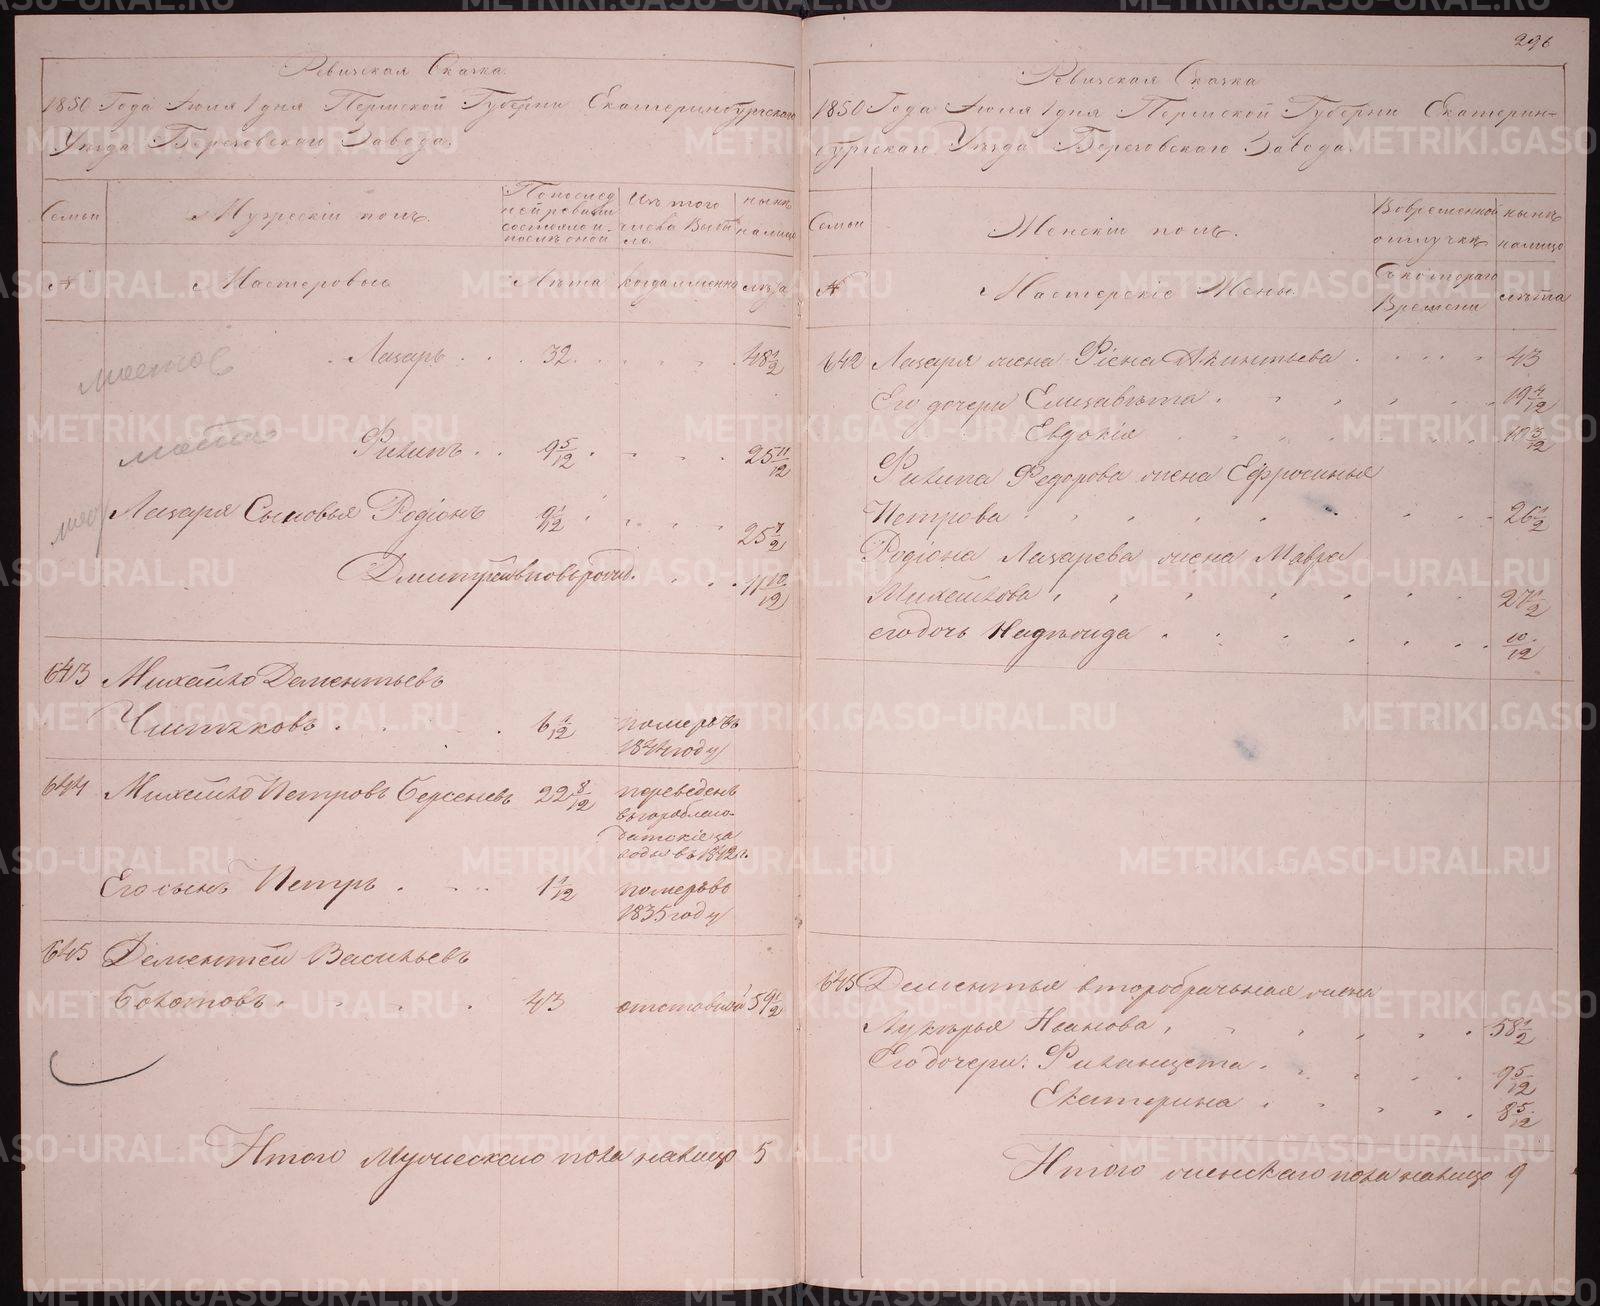 296
Ревизская Сказка
1850 Года Июля 1 дня Пермской Губерни Екатеринбургскаго
Уезда Березовскаго Завода.
Семьи
Мужескій полъ.
По послед
ней ревизіи
состояло и
послѣ оной
Изъ того
числа Выбы
ло.
нынѣ
налицо
№
Мастеровые
Лѣта
когда именно
лѣта
Лазарь . . . 32 . . . . 48 1/2
Филипъ . . 9 5/12 . . . . 25 11/12
Лазаря Сыновья Родіонъ 9 1/12 . . . . 25 1/2
Дмитрей вновьрожд. . . . 11 10/12
643 Михайло Дементьевъ
Чистяковъ . . . 6 1/12 померъ въ
1844 году
644 Михайло Петровъ Берсеневъ 22 8/12 переведенъ
въ гороблаго-
датскіе за
воды въ 1842 г.
Его сынъ Петръ . . . 1 1/12 померъ въ
1835 году
645 Дементей Васильевъ
Болотовъ . . . . 43 отставной 59 1/2
Итого Мужескаго пола налицо 5
Ревизская Сказка
1850 Года Июля 1 дня Пермской Губерни Екатерин-
бургскаго Уезда Березовскаго Завода.
Семьи
Женскій полъ.
Во временной
отлучкѣ
нынѣ
налицо
№
Мастерскіе Жены.
Съ котораго
Времени
лѣта
642 Лазаря жена Акинтьева . . . . 43
Его дочери Елизавѣта . . . . 19 4/12
Евдокія . . . . 10 3/12
Филипа Федорова жена Ефросинья
Петрова . . . . 26 1/2
Родіона Лазарева жена Мавра
Михайлова . . . . 27 1/2
его дочь Надѣжда . . . . 10/12
645 Дементья второбрачьная жена
Лукѣрья Иванова . . . . 58 1/2
Его дочери: Филанцета . . . . 9 5/12
Екатерина . . . . 8 5/12
Итого женскаго пола налицо 9
METRIKI.GASO-URAL.RU